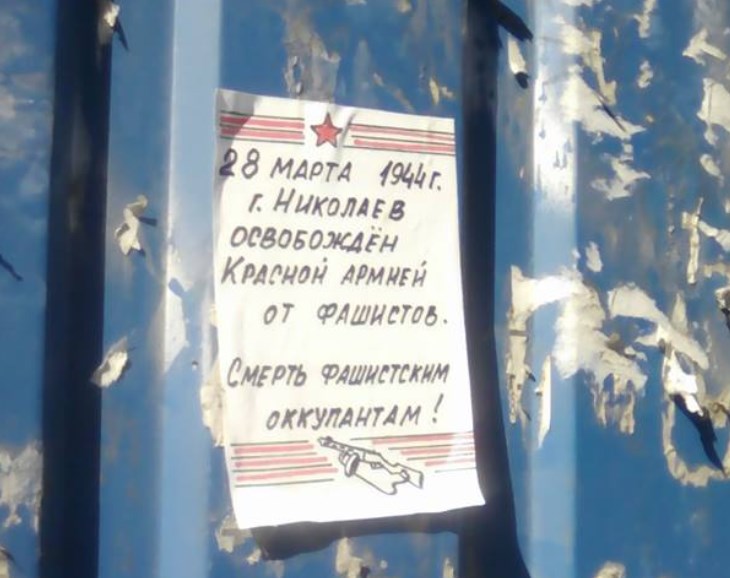 28 МАРТА 1944г.
г. НИКОЛАЕВ
ОСВОБОЖДЁН
КРАСНОЙ АРМИЕЙ
ОТ ФАШИСТОВ.
СМЕРТЬ ФАШИСТСКИМ
ОККУПАНТАМ!